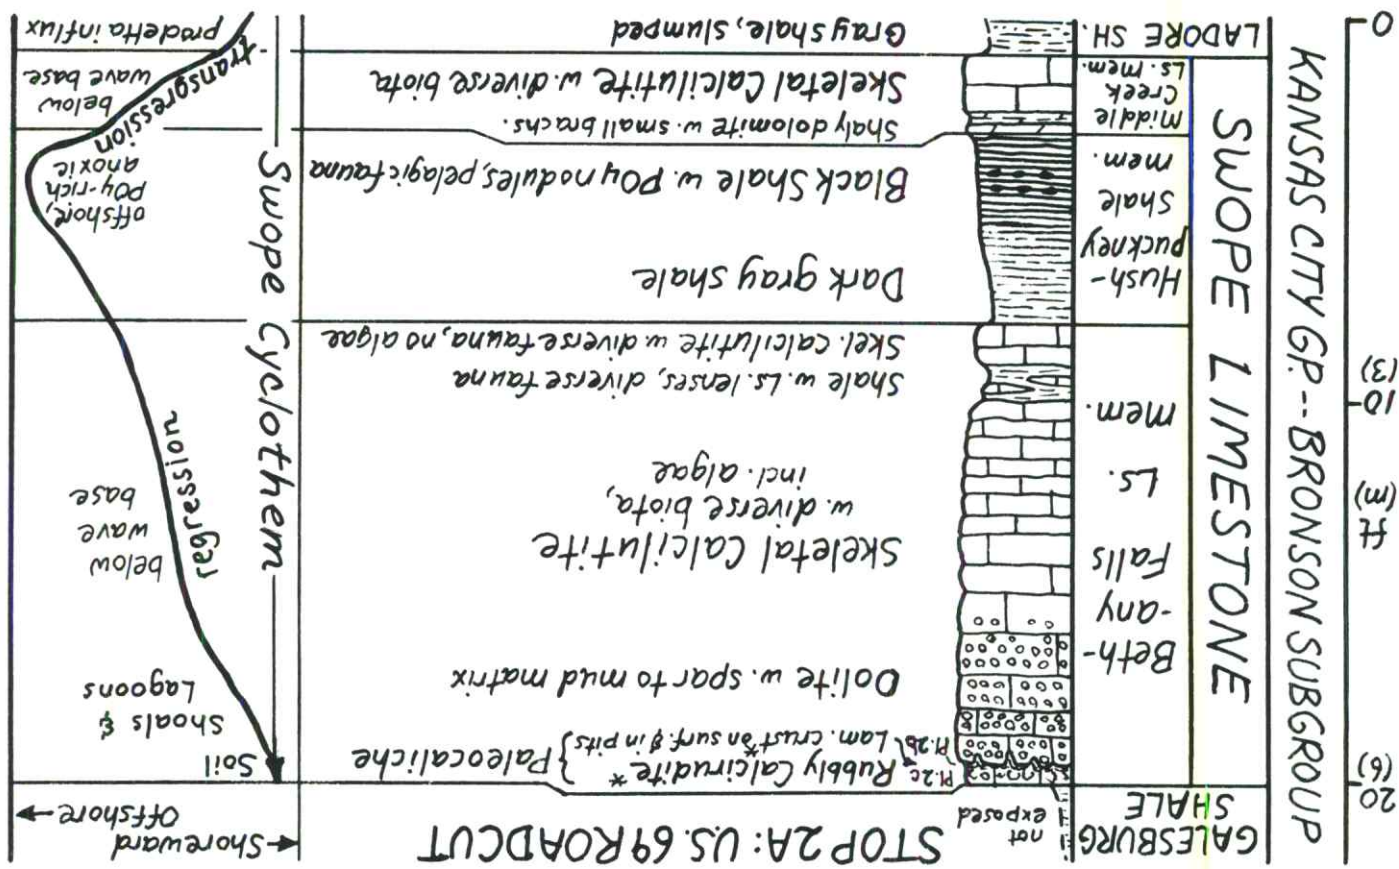 STOP 2A: U.S. 69 ROADCUT
←Shoreward
Offshore→
20
(6)
ft
(m)
10
(3)
0
KANSAS CITY GP. -- BRONSON SUBGROUP
GALESBURG
SHALE
SWOPE LIMESTONE
LADORE SH.
Beth-
-any
Falls
Ls.
mem.
Hush-
puckney
Shale
mem.
Middle
Creek
Ls. mem.
not
exposed
Pl. 2c Rubbly Calcirudite*
Pl. 2b Lam. crust* on surf. & in pits
} Paleocaliche
Oolite w. spar to mud matrix
Skeletal Calcilutite
w. diverse biota,
incl. algae
Shale w. Ls. lenses, diverse fauna
Skel. calcilutite w. diverse fauna, no algae
Dark gray shale
Black Shale w. PO4 nodules, pelagic fauna
Shaly dolomite w. small brachs.
Skeletal Calcilutite w. diverse biota
Gray shale, slumped
Swope Cyclothem
Soil
Shoals &
Lagoons
regression
below
wave
base
offshore,
PO4-rich
anoxic
transgression
below
wave base
prodelta influx